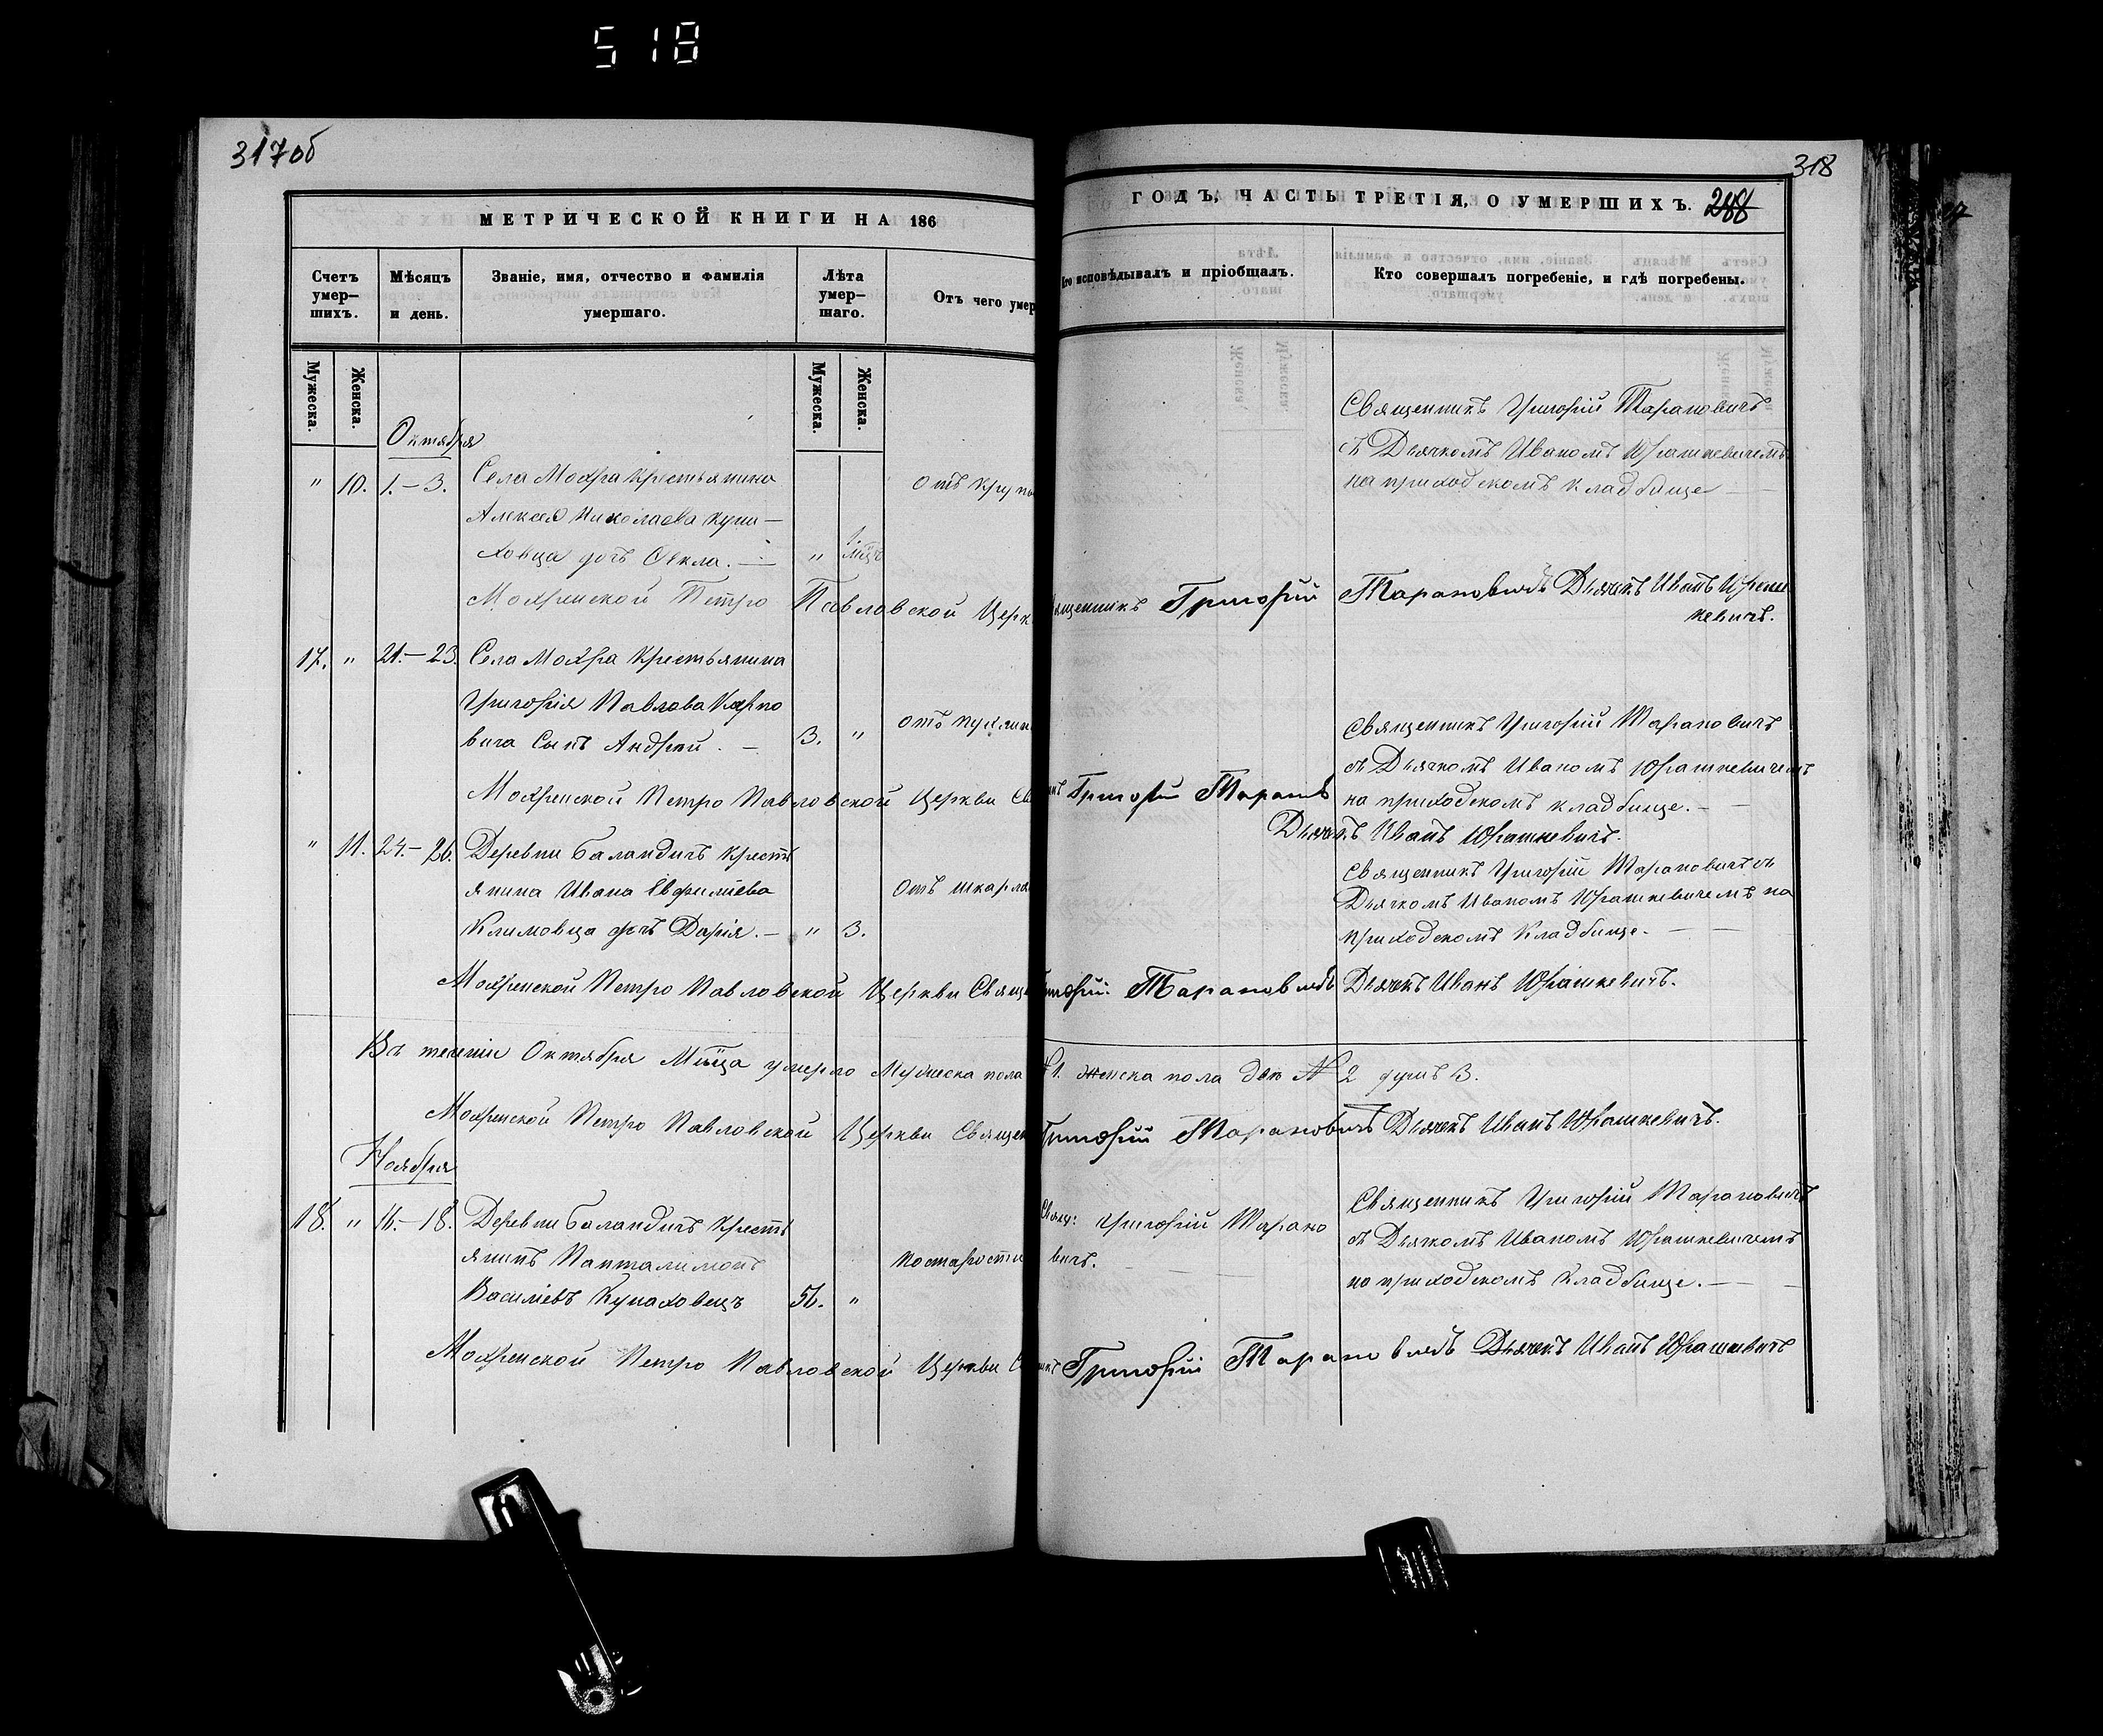 518
317об
МЕТРИЧЕСКОЙ КНИГИ НА 186
Счетъ умер–шихъ.
Мѣсяцъ и день.
Званіе, имя, отчество и фамилія умершаго.
Лѣта умер–шаго.
Отъ чего умер
Мужеска.
Женска.
Мужеска.
Женска.
Октября
" 10. 1.–3. Села Мохра Крестьянина
Алексея Николаева Купи–
ховца дочь Ѳекла. — " 1. мѣц
отъ круп
Мохренской Петро Павловской Церк
17. " 21.–23. Села Мохра Крестьянина
Григорія Павлова Карпо
вича Сынъ Андрей. – 3. "
отъ
Мохренской Петро Павловской Церкви Св
" 11. 24.–26. Деревни Баландичъ Кресть
янина Ивана Евфиміева
Климовца дочь Дарія. – " 3.
отъ шкарла
Мохренской Петро Павловской Церкви Свящ
Въ теченіи Октября Мѣсяца умерло Мужеска пола
Мохренской Петро Павловской Церкви Священ
Ноября
18. " 16.–18. Деревни Баландичъ Кресть
янинъ Панталимонъ
Василіевъ Купаховецъ 56. "
по старости
Мохренской Петро Павловской Церкви С
318
ГОДЪ, ЧАСТЬ ТРЕТІЯ, О УМЕРШИХЪ. 288
Кто исповѣдывалъ и пріобщалъ.
Кто совершалъ погребеніе, и гдѣ погребены.
Священникъ Григорій Тарановичъ
съ Дьячкомъ Иваномъ Юрашкевичемъ
на приходскомъ кладбище —
ященникъ Григорій Тарановичъ Дьячекъ Иванъ Юраш
кевичъ.
Священникъ Григорій Тарановичъ
съ Дьячкомъ Иваномъ Юрашкевичемъ
на приходскомъ кладбище. —
Григорій Таранов
Дьячекъ Иванъ Юрашкевичъ.
Священникъ Григорій Тарановичъ съ
Дьячкомъ Иваномъ Юрашкевичемъ на
приходскомъ Кладбище. —
Григорій Тарановичъ Дьячекъ Иванъ Юрашкевичъ.
№ 1. женска пола № 2 душъ 3.
Григорій Тарановичъ Дьячекъ Иванъ Юрашкевичъ.
Свящ: Григорій Тарано
вичъ. —
Священникъ Григорій Тарановичъ
съ Дьячкомъ Иваномъ Юрашкевичемъ
на приходскомъ Кладбище. —
Григорій Тарановичъ Дьячекъ Иванъ Юрашкевичъ